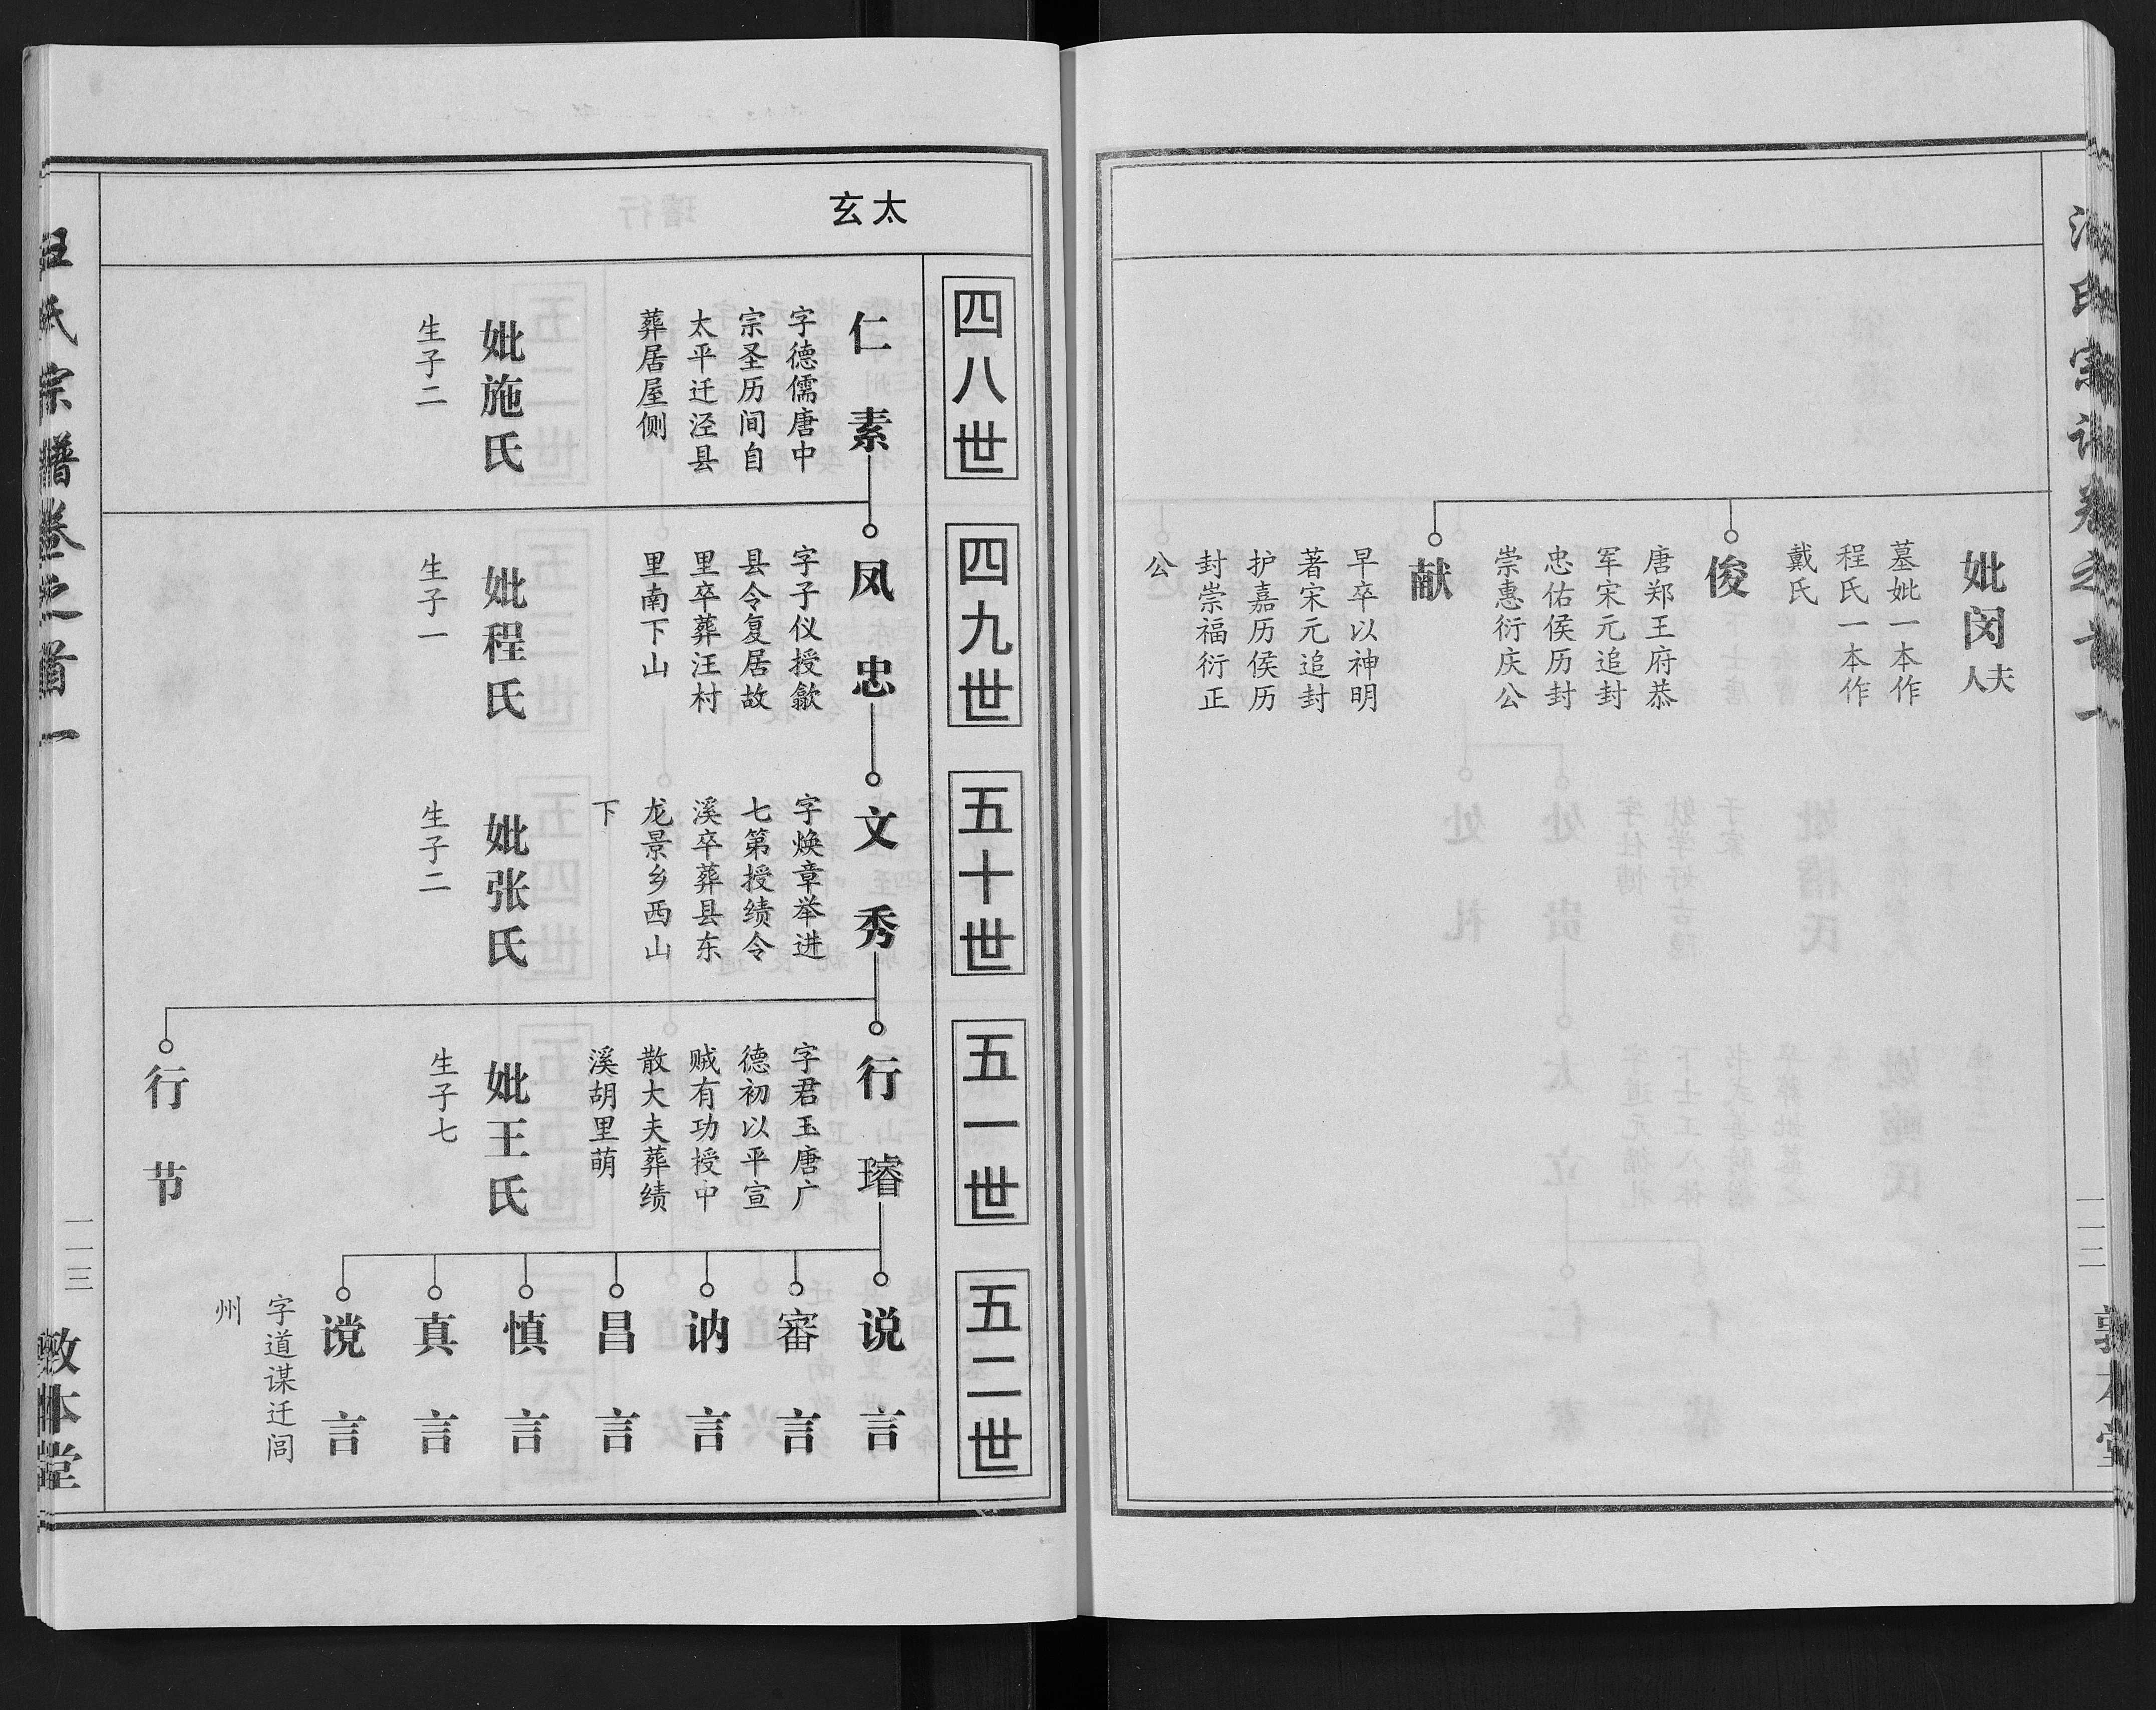 妣闵夫人
墓妣一本作
程氏一本作
戴氏
俊
唐郑王府恭
军宋元追封
忠佑侯历封
崇惠衍庆公
献
早卒以神明
著宋元追封
护嘉历侯历
封崇福衍正
公
一一二
太玄
四八世
仁素
字德儒唐中
宗圣历间自
太平迁泾县
葬居屋侧
妣施氏
生子二
四九世
凤忠
字子仪授歙
县令复居故
里卒葬汪村
里南下山
妣程氏
生子一
五十世
文秀
字焕章举进
七第授绩令
溪卒葬县东
龙景乡西山
下
妣张氏
生子二
五一世
行璿
字君玉唐广
德初以平宣
贼有功授中
散大夫葬绩
溪胡里萌
妣王氏
生子七
行节
五二世
说言
審言
讷言
昌言
慎言
真言
谠言
字道谋迁闾
州
汪氏宗谱卷之首一
一一三
敦本堂